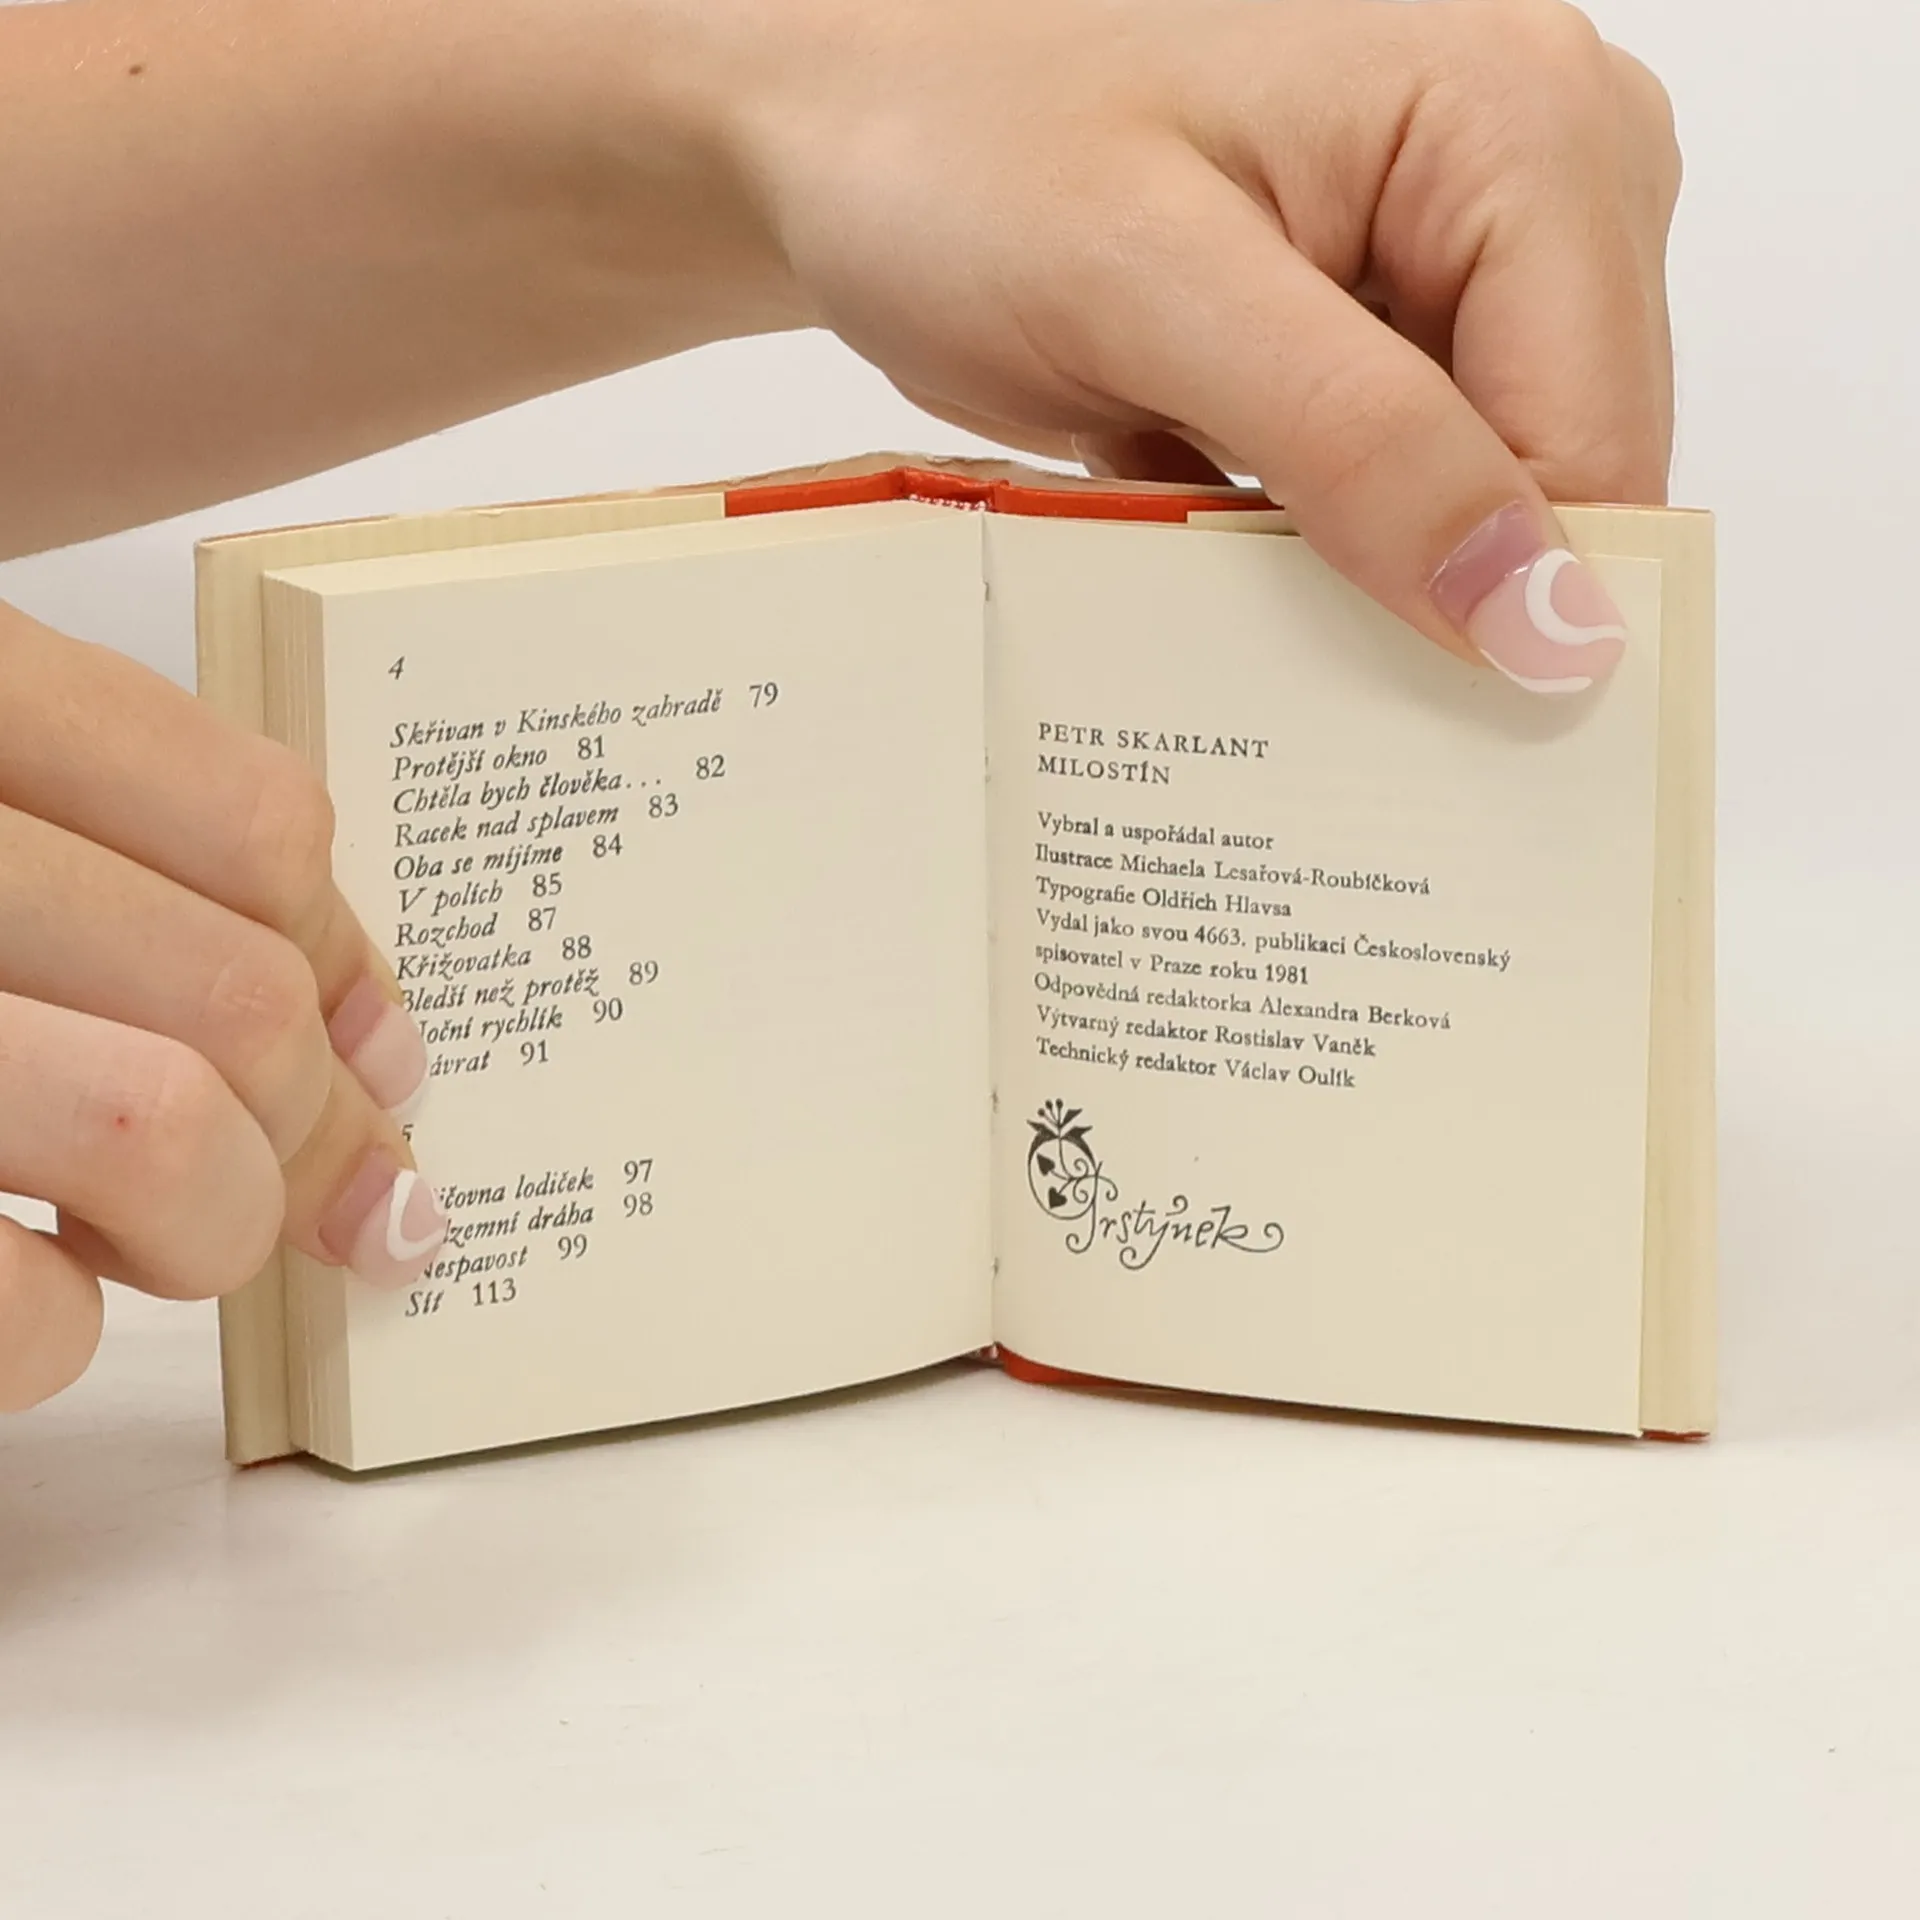 4
Skřivan v Kinského zahradě 79
Protější okno 81
Chtěla bych člověka... 82
Racek nad splavem 83
Oba se míjíme 84
V polích 85
Rozchod 87
Křižovatka 88
Bledší než protěž 89
rychlík 90
91
5
lodiček 97
dráha 98
Nespavost 99
Síť 113
PETR SKARLANT
MILOSTÍN
Vybral a uspořádal autor
Ilustrace Michaela Lesařová-Roubíčková
Typografie Oldřich Hlavsa
Vydal jako svou 4663. publikaci Československý
spisovatel v Praze roku 1981
Odpovědná redaktorka Alexandra Berková
Výtvarný redaktor Rostislav Vaněk
Technický redaktor Václav Oulík
Prstýnek